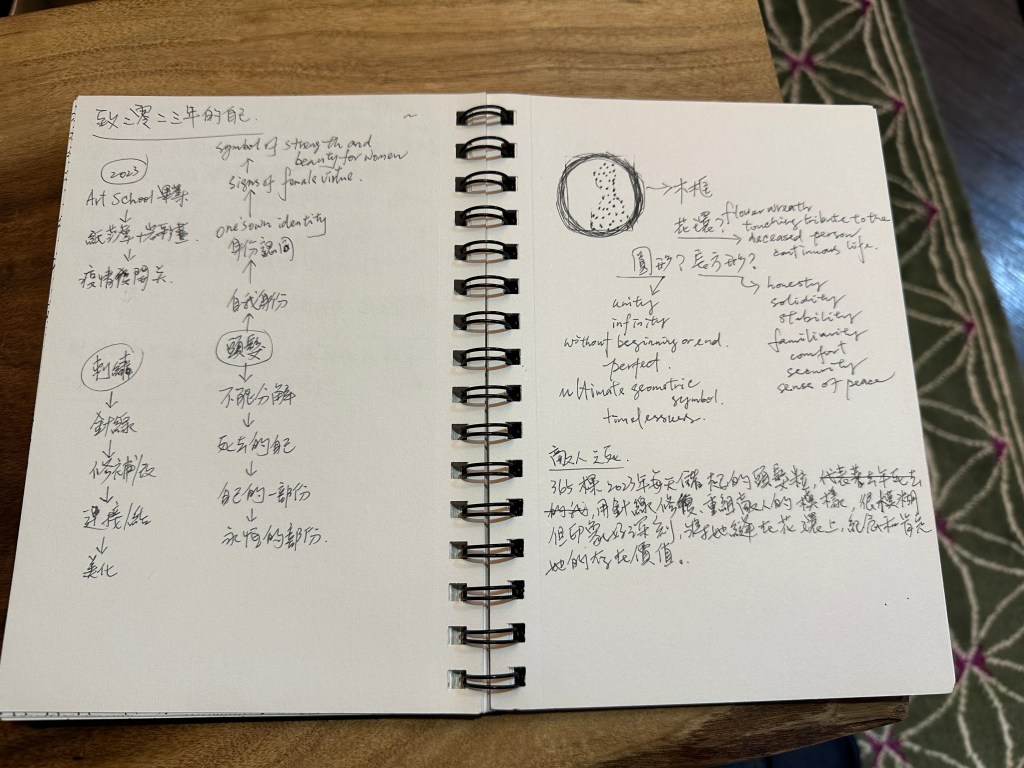 致二零二三年的自己.
2023
Art School 畢業
疫情後開关.
symbol of strength and
beauty for women
signs of female virtue.
one's own identity
身份認同
自我身份
頭髮
不能分解
死去的自己
自己的一部份
永恆的部份.
刺繡
針線
修補
連接
美化
木框
花環?
flower wreath
touching tribute to the
deceased person,
continuous life.
圓形? 長方形?
unity
infinity
without beginning or end.
perfect.
ultimate geometric
symbol.
timelessness.
honesty
solidity
stability
familiarity
comfort
security
sense of peace
敵人之死.
365棵2023年每天儲起的頭髮粒, 代表著去年死去
的我, 用針線修復、重組敵人的模樣, 很模糊
但印象好深刻, 將她縫在花環上, 紀底和肯定
她的存在價值。